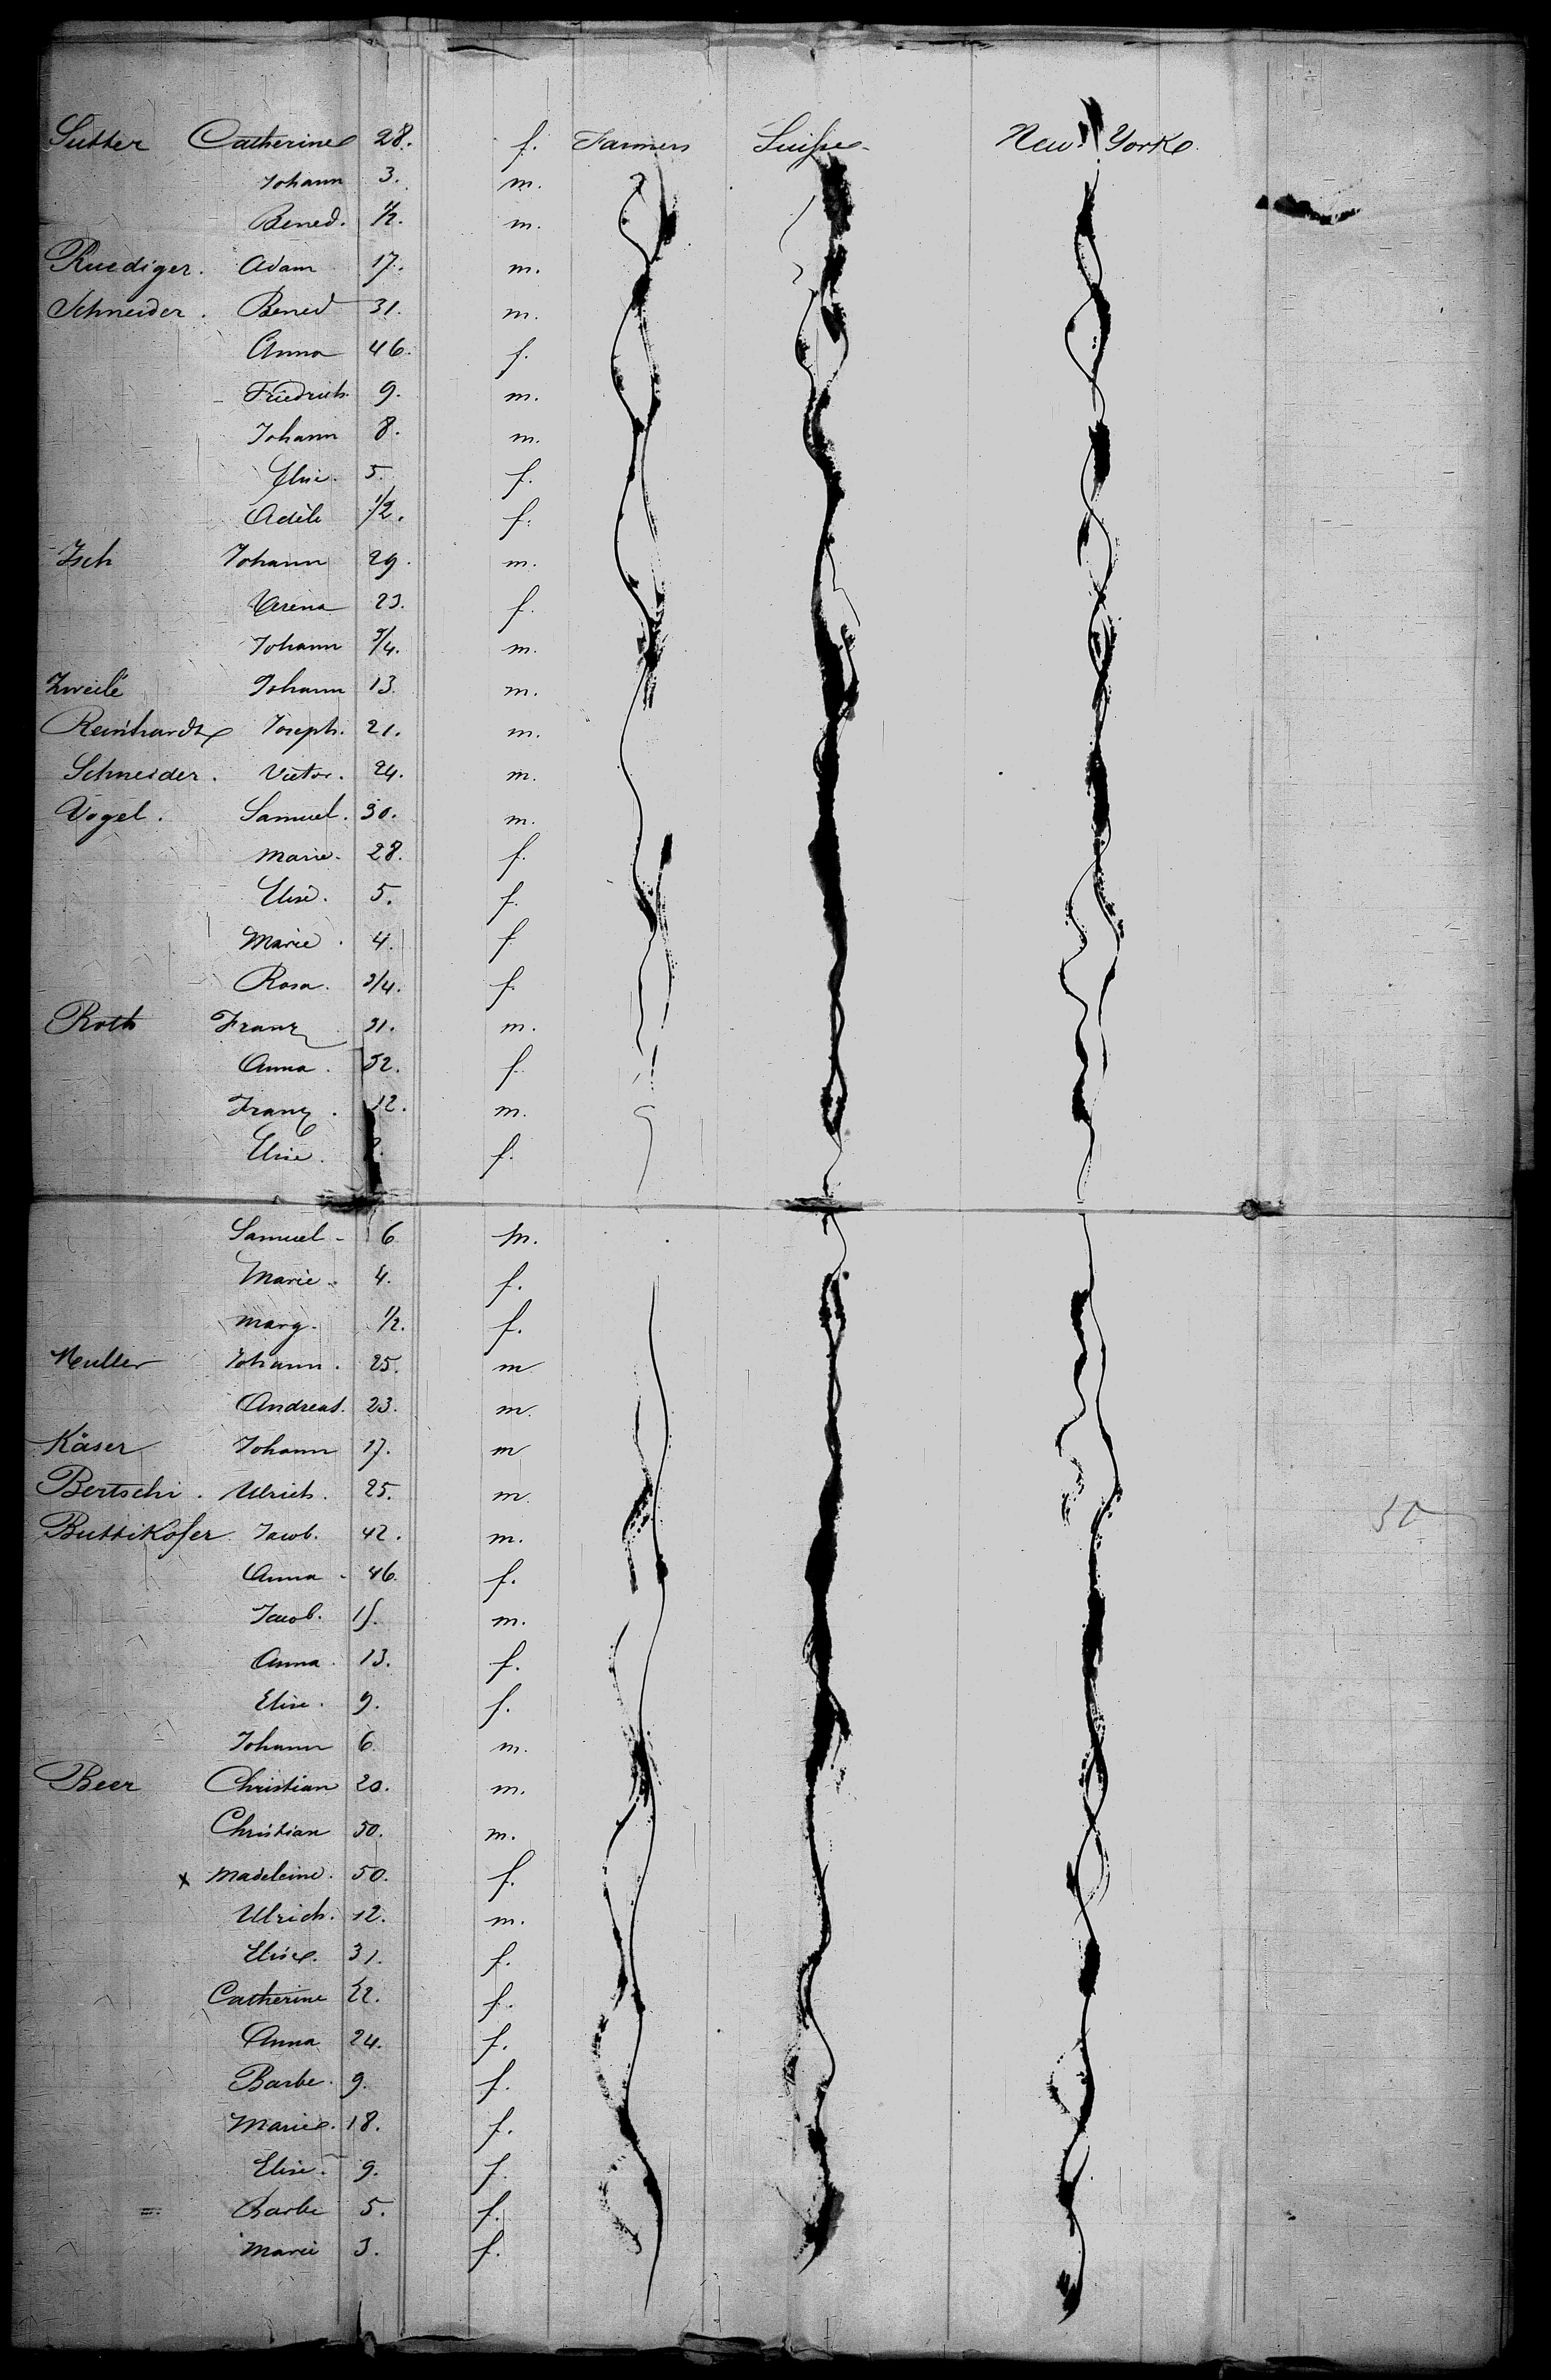 Sutter Catherine 28. f. Farmers Suisse New York
Johann 3. m.
Bened. 1/2. m.
Ruediger. Adam 17. m.
Schneider. Bened 31. m.
Anna 46. f.
Friedrich 9. m.
Johann 8. m.
Elise. 5. f.
Adèle 1/2. f.
Isch Johann 29. m.
Verena 23. f.
Johann 3/4. m.
Zweilé Johann 13. m.
Reinhardt Joseph. 21. m.
Schneider. Victor. 24. m.
Vogel. Samuel. 30. m.
Marie. 28. f.
Elise. 5. f.
Marie. 4. f
Rosa. 3/4. f.
Roth Franz 31. m.
Anna. 32. f
Franz. 12. m.
Elise. f.
Samuel - 6 m.
Marie. 4. f.
Marg. 1/2. f.
Muller Johann. 25. m
Andreas. 23. m.
Käser Johann 17. m
Bertschi. Ulrich. 25. m.
Buttikofer Jacob. 42. m.
Anna - 46. f.
Jacob. 15. m.
Anna. 13. f.
Elise. 9. f.
Johann 6. m.
Beer Christian 20. m.
Christian 50. m.
x Madeleine. 50. f.
Ulrich. 12. m.
Elise. 31. f.
Catherine 22. f.
Anna 24. f.
Barbe. 9. f.
Marie. 18. f.
Elise. 9. f.
Barbe 5. f.
Marie 3. f.